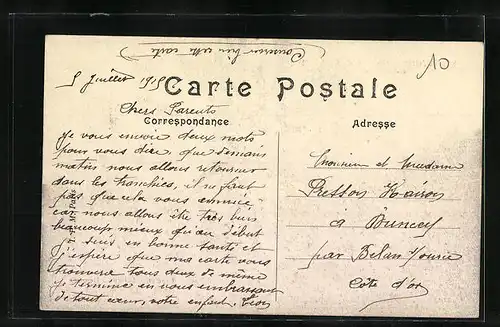 Conserver bien cette carte
10
5 Juillet 1915
Carte Postale
Chers Parents
Correspondance
Adresse
Je vous envoie deux mots
pour vous dire, que demain
matin nous allons retourner
dans les tranchées, il ne faut
pas que cela vous ennuie
car nous allons être très bien
beaucoup mieux qu'au début
je suis en bonne santé et
j'espère que ma carte vous
trouvera tous deux de même
je termine en vous embrassant
de tout cœur, votre enfant. Léon
Monsieur et Madame
à Buncey
par Belan s/ource
Côte d'or